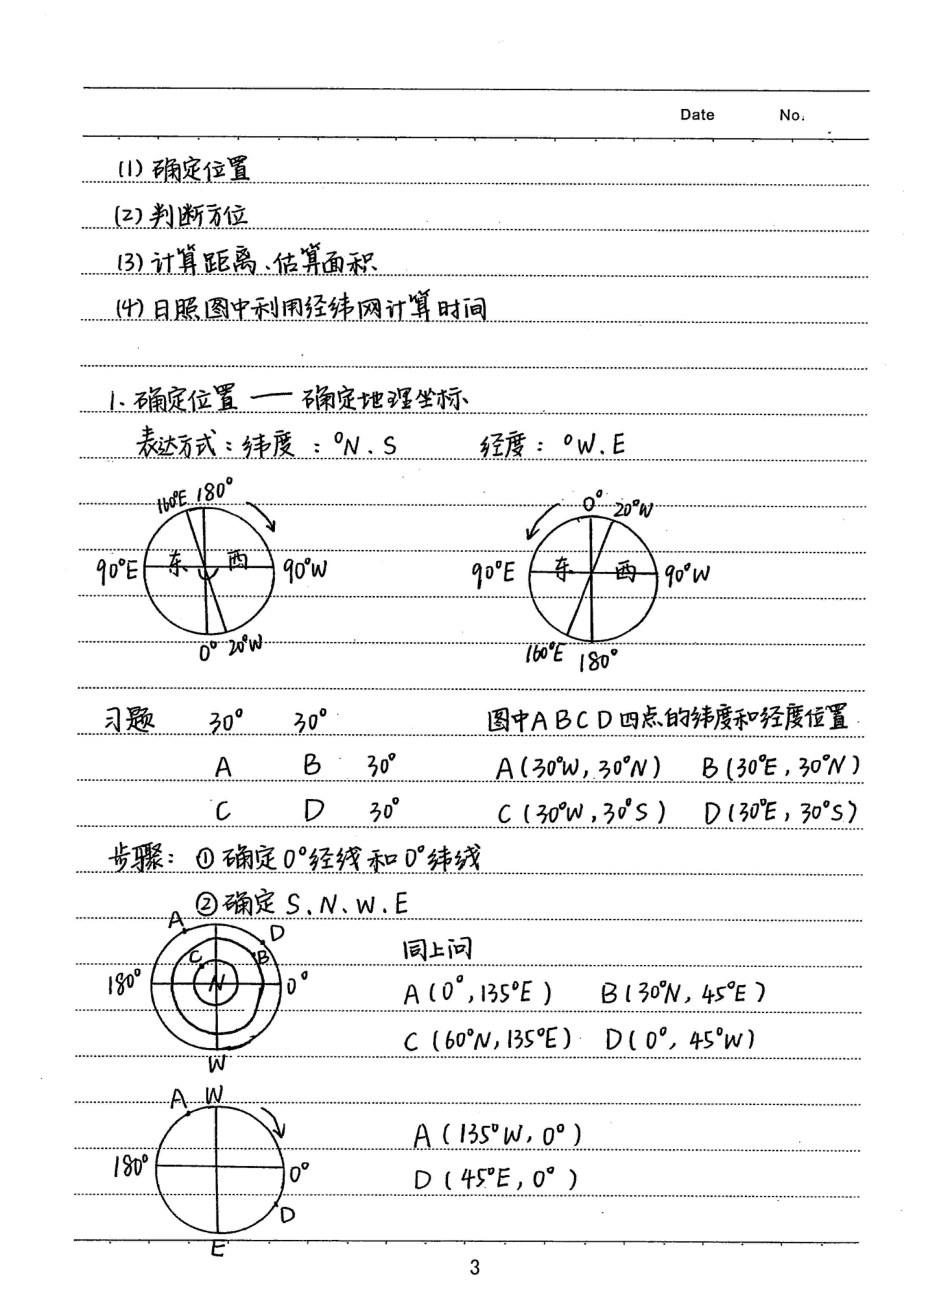 Date No.
(1) 确定位置
(2) 判断方位
(3) 计算距离、估算面积
(4) 日照图中利用经纬网计算时间
1、确定位置 — 确定地理坐标
表达方式：纬度：°N、S 经度：°W、E
160°E 180°
东 西
90°E 90°W
0° 20°W
0° 20°W
东 西
90°E 90°W
160°E 180°
习题 30° 30° 图中A B C D四点的纬度和经度位置
A B 30° A(30°W, 30°N) B(30°E, 30°N)
C D 30° C(30°W, 30°S) D(30°E, 30°S)
步骤：① 确定0°经线和0°纬线
② 确定 S、N、W、E
A D
C B
180° N 0°
W
同上问
A(0°, 135°E) B(30°N, 45°E)
C(60°N, 135°E) D(0°, 45°W)
A W
180° 0°
D
E
A(135°W, 0°)
D(45°E, 0°)
3